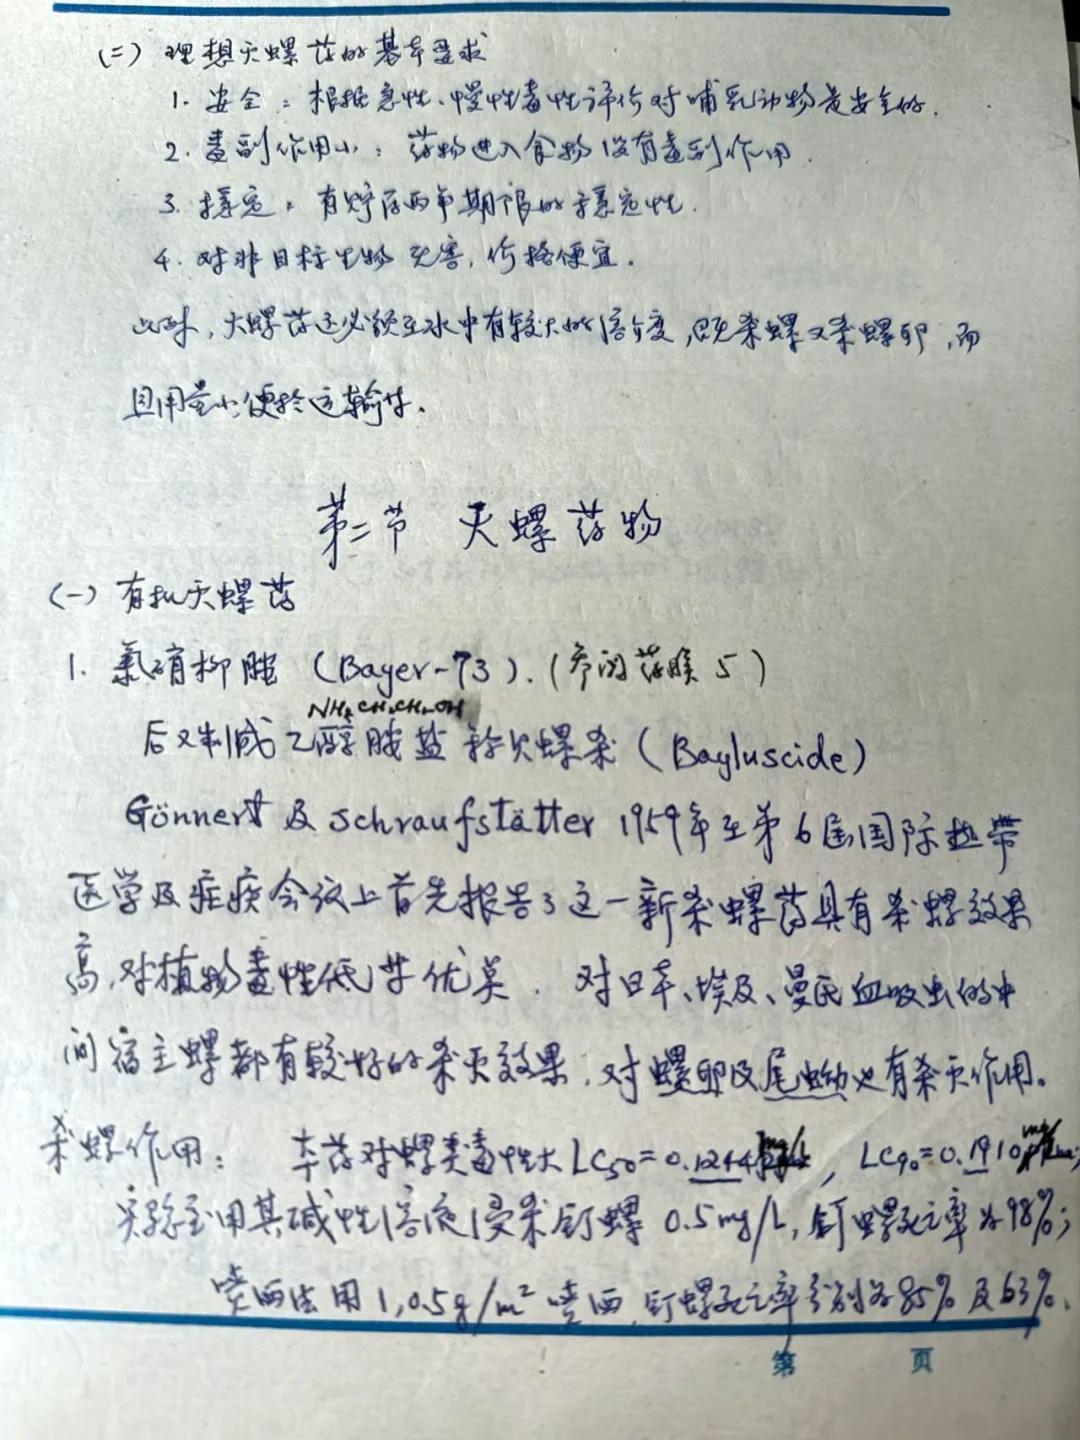 (二) 理想灭螺药的基本要求
1. 安全：根据急性、慢性毒性评价对哺乳动物是安全的.
2. 毒副作用小：药物进入食物没有毒副作用.
3. 稳定：有贮存两年期限的稳定性.
4. 对非目标生物无害，价格便宜.
此外，灭螺药还必须在水中有较大的溶介度，既杀螺又杀螺卵，而
且用量小便於运输等.
第二节 灭螺药物
(一) 有机灭螺药
1. 氯硝柳胺 (Bayer-73). (参阅药膜 5)
NH₂CH₂CH₂OH
后又制成乙醇胺盐称灭螺杀 (Bayluscide)
Gönnert 及 Schraufstätter 1959年在第6届国际热带
医学及疟疾会议上首先报告了这一新杀螺药具有杀螺效果
高，对植物毒性低等优点. 对日本、埃及、曼氏血吸虫的中
间宿主螺都有较好的杀灭效果，对螺卵及尾蚴也有杀灭作用.
杀螺作用： 本药对螺类毒性大 LC₅₀=0.1244 mg/L, LC₉₀=0.1910 mg/L;
实验室用其碱性溶液浸杀钉螺 0.5mg/L, 钉螺死亡率为98%;
喷洒法用 1,0.5g/m² 喷洒, 钉螺死亡率分别为85%及63%.
第 页